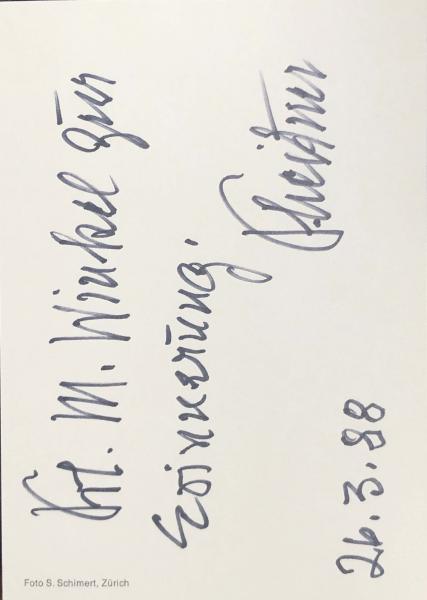 Frl. M. Winkel zur
Erinnerung.
26.3.88
Foto S. Schimert, Zürich